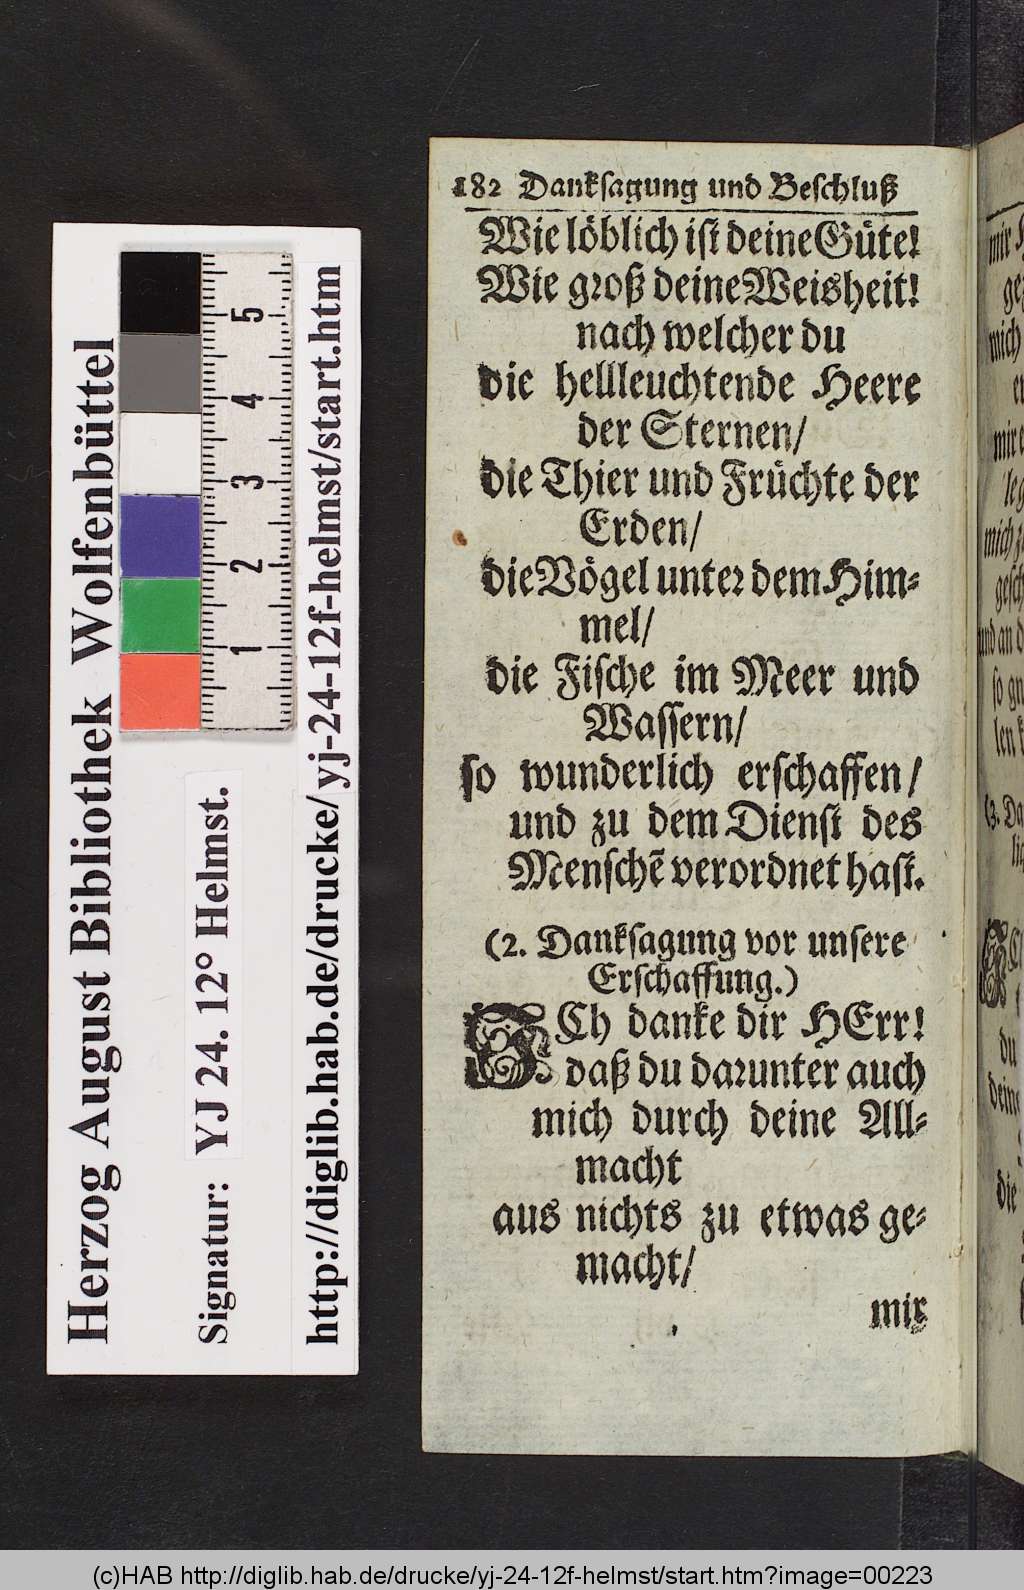 182 Dankſagung und Beſchluß
Wie löblich iſt deine Güte!
Wie groß deine Weisheit!
nach welcher du
die hellleuchtende Heere
der Sternen/
die Thier und Früchte der
Erden/
die Vögel unter dem Him⸗
mel/
die Fiſche im Meer und
Waſſern/
ſo wunderlich erſchaffen/
und zu dem Dienſt des
Menſchẽ verordnet haſt.
(2. Dankſagung vor unſere
Erſchaffung.)
ICh danke dir HErr!
daß du darunter auch
mich durch deine All⸗
macht
aus nichts zu etwas ge⸗
macht/
mir
Herzog August Bibliothek Wolfenbüttel
Signatur: YJ 24. 12° Helmst.
http://diglib.hab.de/drucke/yj-24-12f-helmst/start.htm
5
4
3
2
1
mir
mich
mir
mich
und an
ſo
(3.
du
deine
die
(c)HAB http://diglib.hab.de/drucke/yj-24-12f-helmst/start.htm?image=00223